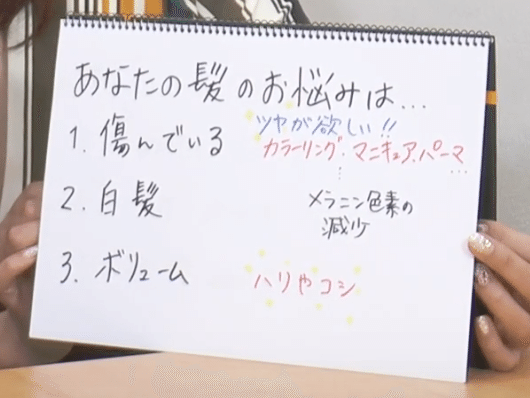 あなたの髪のお悩みは…
1. 傷んでいる
ツヤが欲しい!!
カラーリング・マニキュア・パーマ…
⋮
2. 白髪
メラニン色素の
減少
3. ボリューム
ハリやコシ